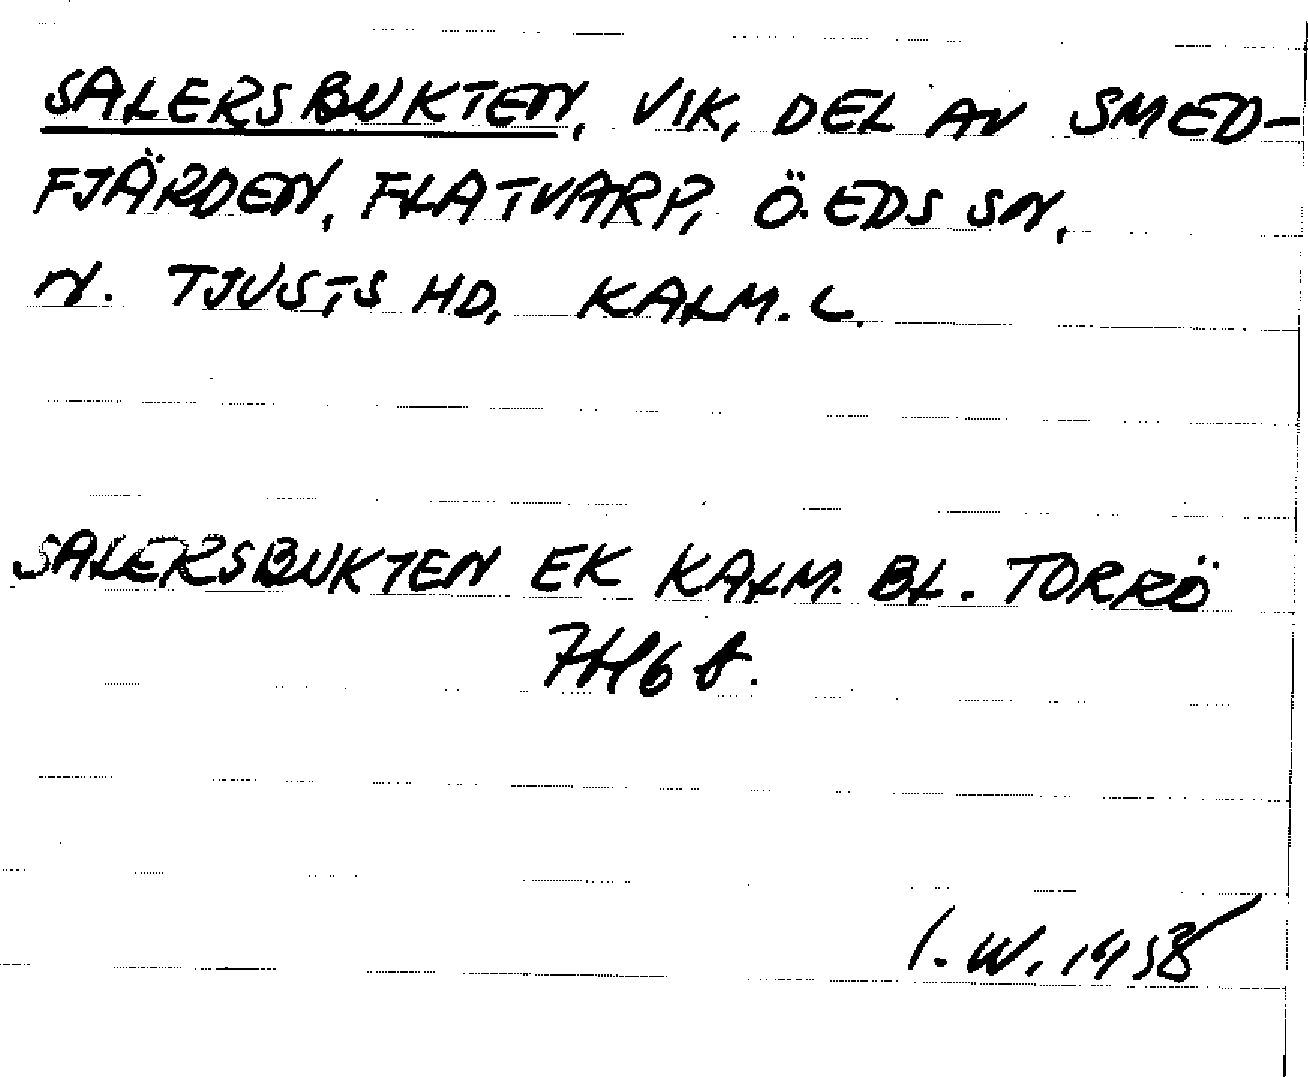 SALERSBUKTEN, VIK, DEL AV SMED-
FJÄRDEN, FLATVARP, Ö. EDS SN,
N. TJUSTS HD, KALM. L.
SALERSBUKTEN EK KALM. BL. TORRÖ
7H6f.
I. W. 1958